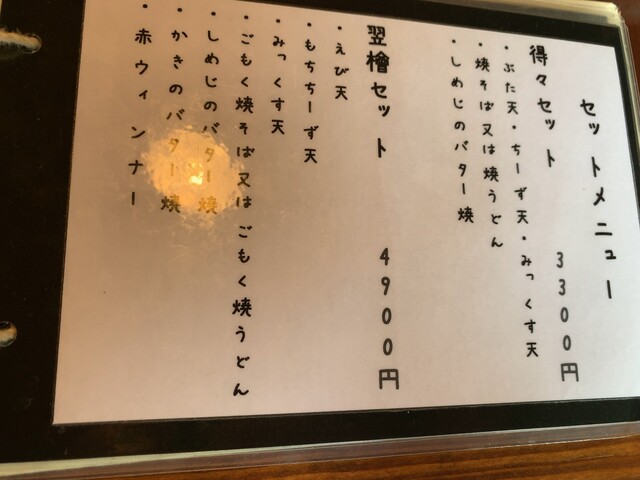 セットメニュー
得々セット 3300円
・ぶた天・ちーず天・みっくす天
・焼そば又は焼うどん
・しめじのバター焼
翌檜セット 4900円
・えび天
・もちちーず天
・みっくす天
・ごもく焼そば又はごもく焼うどん
・しめじのバター焼
・かきのバター焼
・赤ウィンナー